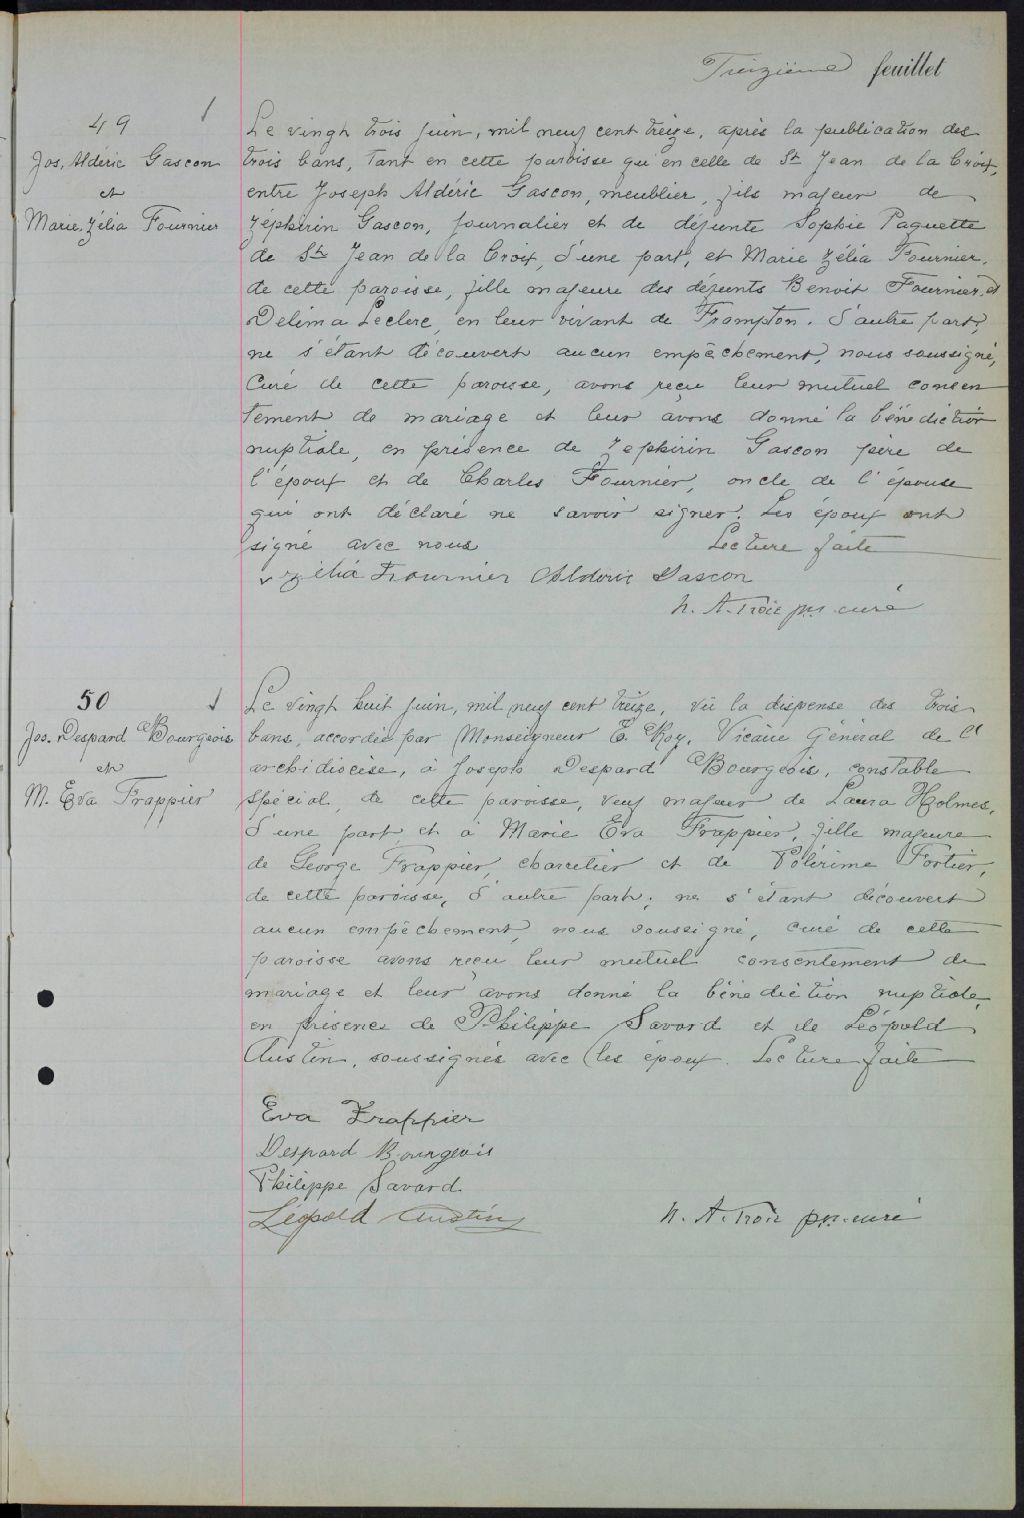 Treizième feuillet
49
Jos. Aldéric Gascon
et
Marie. Zélia Fournier
Le vingt trois juin, mil neuf cent treize, après la publication des
trois bans, tant en cette paroisse qu'en celle de St Jean de la Croix,
entre Joseph Aldéric Gascon, meublier, fils majeur de
Zéphirin Gascon, journalier et de défunte Sophie Paquette
de St Jean de la Croix, d'une part, et Marie Zélia Fournier,
de cette paroisse, fille majeure des défunts Benoit Fournier et
Delima Leclerc, en leur vivant de Frampton. d'autre part;
ne s'étant découvert aucun empêchement, nous soussigné,
Curé de cette paroisse, avons reçu leur mutuel consen
tement de mariage et leur avons donné la bénédiction
nuptiale, en présence de Zephirin Gascon père de
l'époux et de Charles Fournier, oncle de l'épouse
qui ont déclaré ne savoir signer. Les époux ont
signé avec nous Lecture faite
Zélia Fournier Alderic Gascon
N. A. Troie ptre curé
50
Jos. Despard Bourgeois
et
M. Eva Frappier
Le vingt huit juin, mil neuf cent treize, vu la dispense des trois
bans, accordée par Monseigneur E. Roy, Vicaire Général de l'
archidiocèse, à Joseph Despard Bourgeois, constable
spécial, de cette paroisse, veuf majeur de Laura Holmes,
d'une part, et à Marie Eva Frappier, fille majeure
de George Frappier, charretier et de Polérime Fortier,
de cette paroisse, d'autre part; ne s'étant découvert
aucun empêchement, nous soussigné, curé de cette
paroisse avons reçu leur mutuel consentement de
mariage et leur avons donné la bénédiction nuptiale,
en présence de Philippe Savard et de Léopold
Austin, soussignés avec les époux. Lecture faite
Eva Frappier
Despard Bourgeois
Philippe Savard
Léopold Austin N. A. Troie ptre. curé